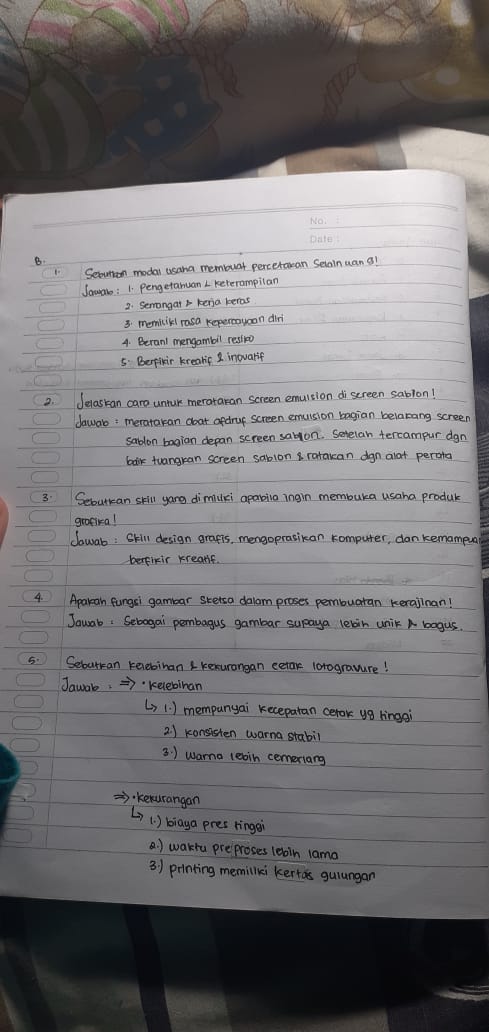 No. :
Date :
B.
1. Sebutkan modal usaha membuat percetakan selain uang!
Jawab : 1. Pengetahuan & keterampilan
2. Semangat & kerja keras
3. memiliki rasa kepercayaan diri
4. Berani mengambil resiko
5. Berfikir kreatif & inovatif
2. Jelaskan cara untuk meratakan screen emulsion di screen sablon!
Jawab : meratakan obat afdruf screen emulsion bagian belakang screen
sablon bagian depan screen sablon. Setelah tercampur dgn
baik tuangkan screen sablon & ratakan dgn alat perata
3. Sebutkan skill yang di miliki apabila ingin membuka usaha produk
grafika!
Jawab : Skill design grafis, mengoprasikan komputer, dan kemampuan
berfikir kreatif.
4. Apakah fungsi gambar sketsa dalam proses pembuatan kerajinan!
Jawab : Sebagai pembagus gambar supaya lebih unik & bagus.
5. Sebutkan kelebihan & kekurangan cetak rotogravure!
Jawab : ⇒ • kelebihan
↳ 1.) mempunyai kecepatan cetak yg tinggi
2.) konsisten warna stabil
3.) warna lebih cemerlang
⇒ • kekurangan
↳ 1.) biaya pres tinggi
2.) waktu preproses lebih lama
3.) printing memiliki kertas gulungan